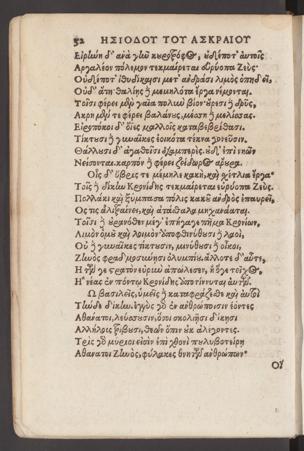 52 ΗΣΙΟΔΟΥ ΤΟΥ ΑΣΚΡΑΙΟΥ
Εἰρήνη δ' ἀνὰ γῆν κουροτρόφος, οὐδέποτ' αὐτοῖς
Ἀργαλέον πόλεμον τεκμαίρεται εὐρύοπα Ζεύς·
Οὐδέποτ' ἰθυδίκαισι μετ' ἀνδράσι λιμὸς ὀπηδεῖ,
Οὐδ' ἄτη· θαλίης ἢ μεμηλότα ἔργα νέμονται.
Τοῖσι φέρει μὲν γαῖα πολὺν βίον· οὔρεσι ἢ δρῦς,
Ἄκρη μέν τε φέρει βαλάνους, μέσση ἢ μελίσσας.
Εἰροπόκοι δ' ὄιες μαλλοῖς καταβεβρίθασι.
Τίκτουσι ἢ γυναῖκες ἐοικότα τέκνα γονεῦσιν.
Θάλλουσι δ' ἀγαθοῖσι διαμπερές· οὐδ' ἐπὶ νηῶν
Νείσονται. καρπὸν ἢ φέρει ζείδωρος ἄρουρα.
Οἷς δ' ὕβρις τε μέμηλε κακὴ, καὶ σχέτλια ἔργα·
Τοῖς ἢ δίκην Κρονίδης τεκμαίρεται εὐρύοπα Ζεύς.
Πολλάκι καὶ ξύμπασα πόλις κακοῦ ἀνδρὸς ἐπαυρεῖ,
Ὅς τις ἀλιτραίνει, καὶ ἀτάσθαλα μηχανάαται.
Τοῖσι ἢ οὐρανόθεν μέγ' ἐπήγαγε πῆμα Κρονίων,
Λιμὸν ὁμοῦ καὶ λοιμὸν· ἀποφθινύθουσι ἢ λαοί,
Οὐ ἢ γυναῖκες τίκτουσιν, μινύθουσι ἢ οἶκοι,
Ζηνὸς φραδμοσύνῃσι ὀλυμπίου. ἄλλοτε δ' αὖτε,
Ἢ τῶν γε στρατὸν εὐρὺν ἀπώλεσεν, ἢ ὅγε τεῖχος,
Ἢ νέας ἐν πόντῳ Κρονίδης ἀποτίννυται αὐτῶν.
Ὦ βασιλεῖς, ὑμεῖς ἢ καταφράζεσθε καὶ αὐτοὶ
Τήνδε δίκην. ἐγγὺς γὸ ἐν ἀνθρώποισιν ἐόντες
Ἀθάνατοι, λεύσσουσιν, ὅσοι σκολιῇσι δίκῃσι
Ἀλλήλους τρίβουσι, θεῶν ὄπιν οὐκ ἀλέγοντες.
Τρὶς γὸ μύριοι εἰσὶν ἐπὶ χθονὶ πουλυβοτείρῃ
Ἀθάνατοι Ζηνὸς, φύλακες θνητῶν ἀνθρώπων·
Οἵ